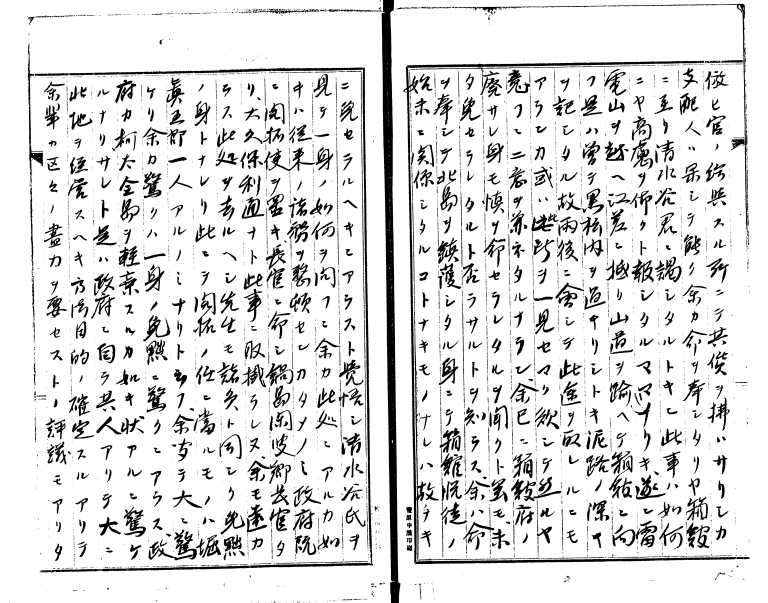 倣ヒ官ノ給與スル所ニテ其價ヲ拂ハサリシカ
支配人ハ果シテ能ク余カ命ヲ奉シタリヤ箱館
ニ至リ清水谷君ニ謁シタルトキニ此事ハ如何
ニヤ高慮ヲ仰クト報シタルママナリキ遂ニ雷
電山ヲ越ヘ江差ニ抵リ山道ヲ踰ヘテ箱館ニ向
フ是ハ曽テ黒松内ヲ過キリシトキ泥路ノ深キ
ヲ記シタル故雨後ニ會シテ此途ヲ取レルニモ
アランカ或ハ此所ヲ一見セマク欲シテ然ルヤ
意フニ二意ヲ兼ネタルナラン余已ニ箱館府ノ
廃サレ身モ慎ヲ命セラレタルヲ聞クト雖モ未
タ免セラレタルト否ラサルトヲ知ラス余ハ命
ヲ奉シテ北島ヲ鎮護シタル身ニテ箱館脱徒ノ
始末ニ関係シタルコトナキモノナレハ故ナキ
ニ免セラルヘキニアラスト覺悟シ清水谷氏ヲ
見テ一身ノ如何ヲ問フニ余カ此処ニアルカ如
キハ従来ノ諸務ヲ整頓センカタメノミ政府既
ニ開拓使ヲ置キ長官ニ命シ鍋島閑叟卿長官タ
リ大久保利通ナト此事ニ取掛ラレ又余モ遠カ
ラス此処ヲ去ルヘシ先生モ諸矢ト同シク免黜
ノ身トナレリ此ニテ開拓ノ任ニ當ルモノハ堀
眞五郎一人アルノミナリト云フ余聞テ大ニ驚
ケリ余カ驚クハ一身ノ免黜ニ驚クニアラス政
府カ柯太全島ヲ軽棄スルカ如キ状アルニ驚ケ
ルナリサレト是ハ政府ニ自ラ其人アリテ大ニ
此地ヲ経営スヘキ方法目的ノ確定スルアリテ
余輩カ区々ノ盡力ヲ要セストノ評議モアリタ